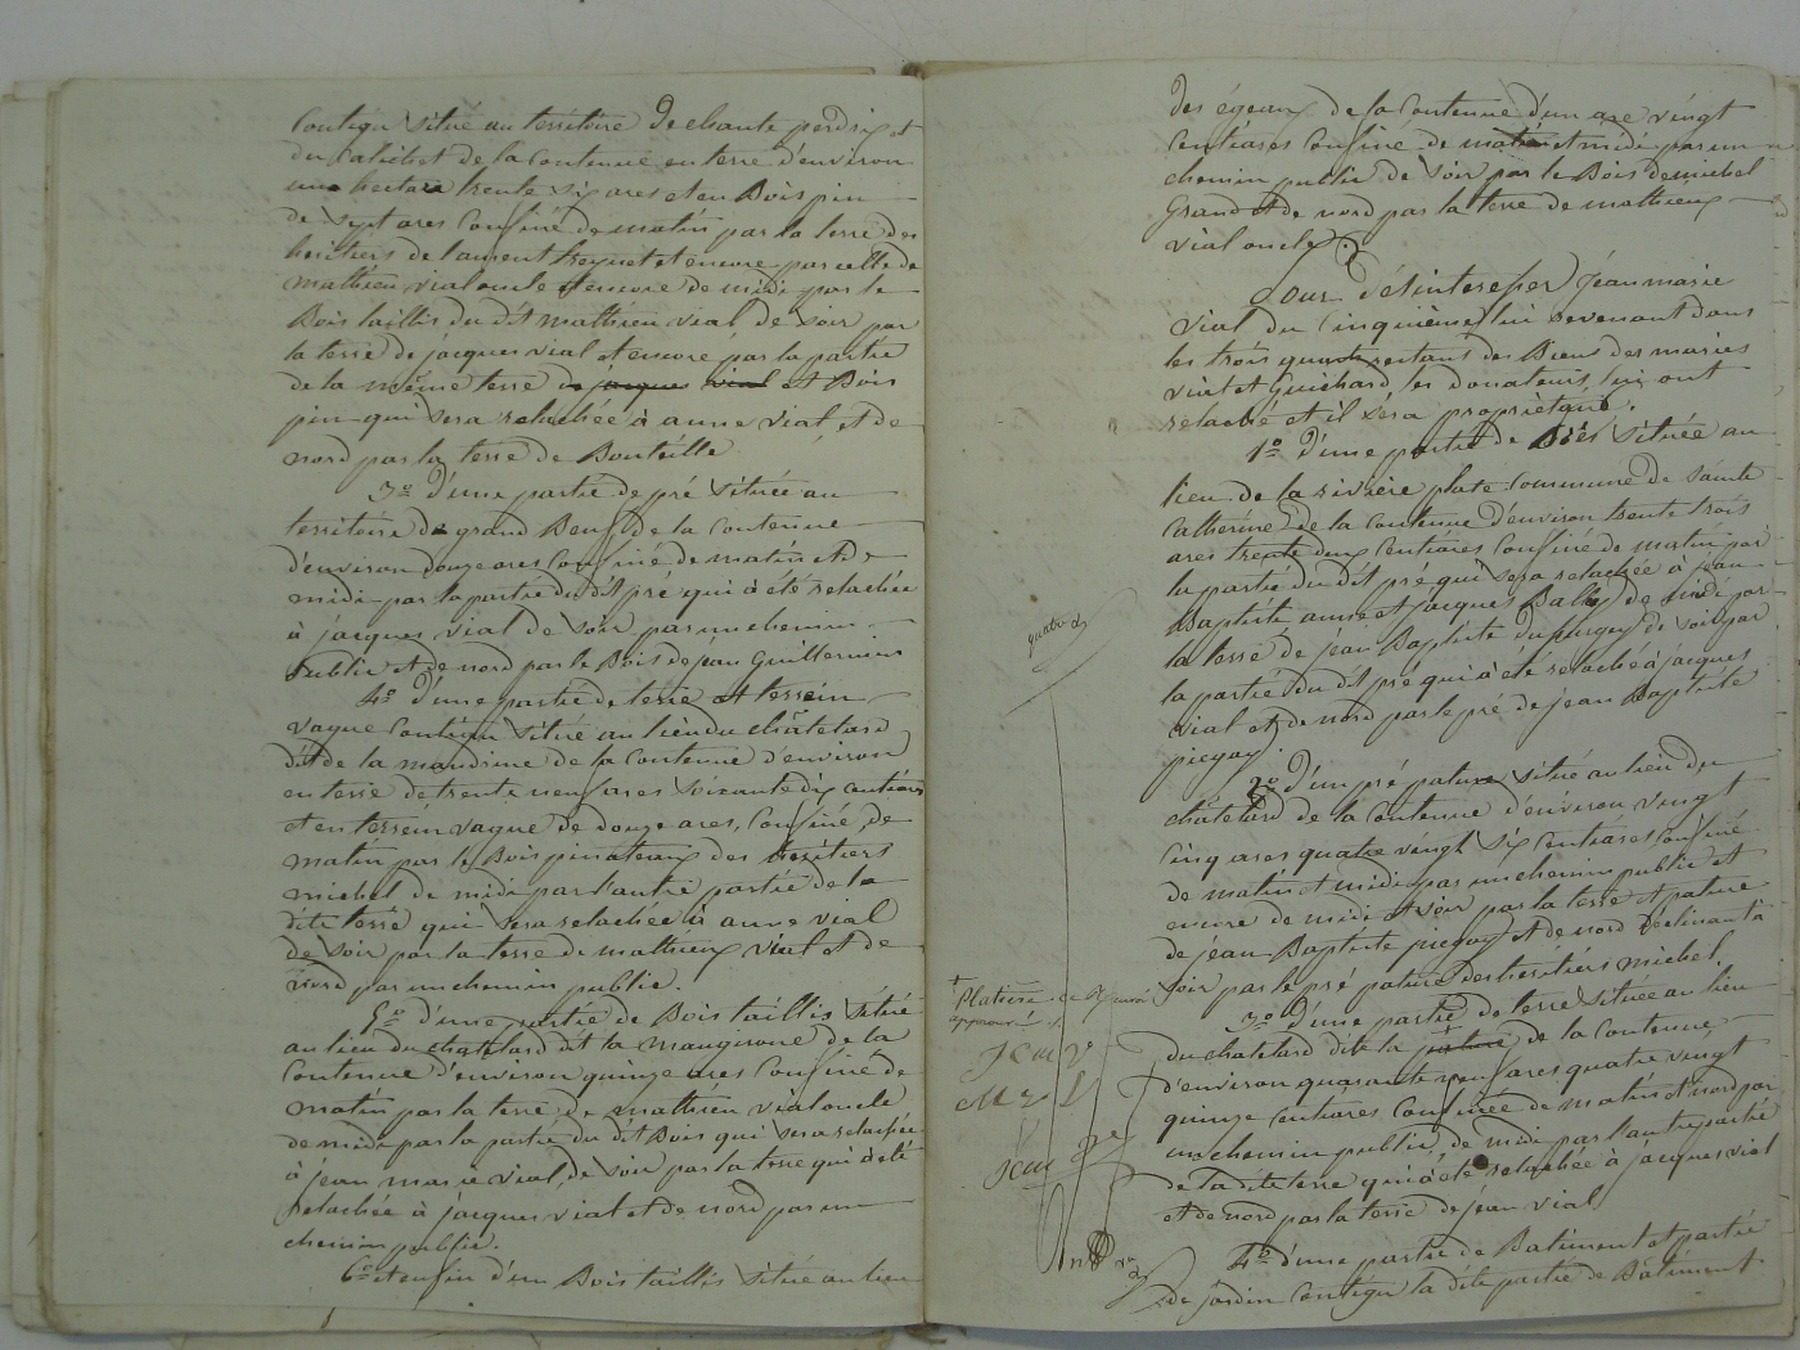 Contigu situé au territoire de chante perdrix et
du calichet de la Contenue en terre d'environ
une hectare trente six ares et en Bois pin
de sept ares Confiné de matin par la terre des
heritiers de laurent treynet et encore par celle de
mathieu vial oncle et encore de midi par le
Bois taillis du dit mathieu vial de soir par
la terre de jacques vial et encore par la partie
de la même terre de jacques vial et Bois
pin qui sera relachée à anne vial et de
nord par la terre de Bouteille
3º d'une partie de pré située au
territoire du grand Beuf de la Contenue
d'environ douze ares Confiné de matin et de
midi par la partie du dit pré qui à été relachée
à jacques vial de soir par un chemin
Public et de nord par le Bois de jean Guillermin
4º d'une partie de terre et terrein
vague Contigu situé au lieu du châtelard
dit de la maudrine de la Contenue d'environ
en terre de trente neuf ares soixante dix centiares
et en terrein vague de douze ares, Confiné de
matin par le Bois pinateaux des heritiers
michel de midi par l'autre partie de la
dite terre qui sera relachée à anne vial
de soir par la terre de mathieu vial et de
nord par un chemin public.
5º d'une partie de Bois taillis situé
au lieu du chatelard dit la maugirone de la
Contenue d'environ quinze ares Confiné de
matin par la terre de mathieu vial oncle
de midi par la partie du dit Bois qui sera relachée
à jean marie vial, de soir par la terre qui à été
relachée à jacques vial et de nord par un
chemin public.
6º et enfin d'un Bois taillis situé au lieu
des égeaux de la Contenue d'un are vingt
Centiares Confiné de matin et midi par un
chemin public de soir par le Bois de michel
Grand et de nord par la terre de mathieu
vial oncle.
Pour désinteresser jean marie
vial du Cinquième lui revenant dans
les trois quarts restant des Biens des mariés
vial et Guichard, les donateurs lui ont
relaché et il sera propriétaire.
1º d'une partie de Prés située au
lieu de la rivière plate Commune de sainte
Catherine de la Contenue d'environ trente trois
ares trente deux Centiares Confiné de matin par
la partie du dit pré qui sera relachée à jean
Baptiste anne et jacques Bally de midi par
la terre de jean Baptiste dupurgey de soir par
la partie du dit pré qui à été relachée à jacques
vial et de nord par le pré de jean Baptiste
piegay.
2º d'un pré pature situé au lieu du
châtelard de la Contenue d'environ vingt
Cinq ares quatre vingt six Centiares Confiné
de matin et midi par un chemin public et
encore de midi et soir par la terre et pature
de jean Baptiste piegay et de nord déclinant à
soir par le pré pature des heritiers michel.
3º d'une partie de terre située au lieu
du chatelard dite la pature de la Contenue
d'environ quarante neuf ares quatre vingt
quinze centiares Confinée de matin et nord par
un chemin public, de midi par l'autre partie
de la dite terre qui à été relachée à jacques vial
et de nord par la terre de jean vial
4º d'une partie de Batiment et partie
de jardin Contigu la dite partie de Bâtiment
quatre
Platiere
approuvé